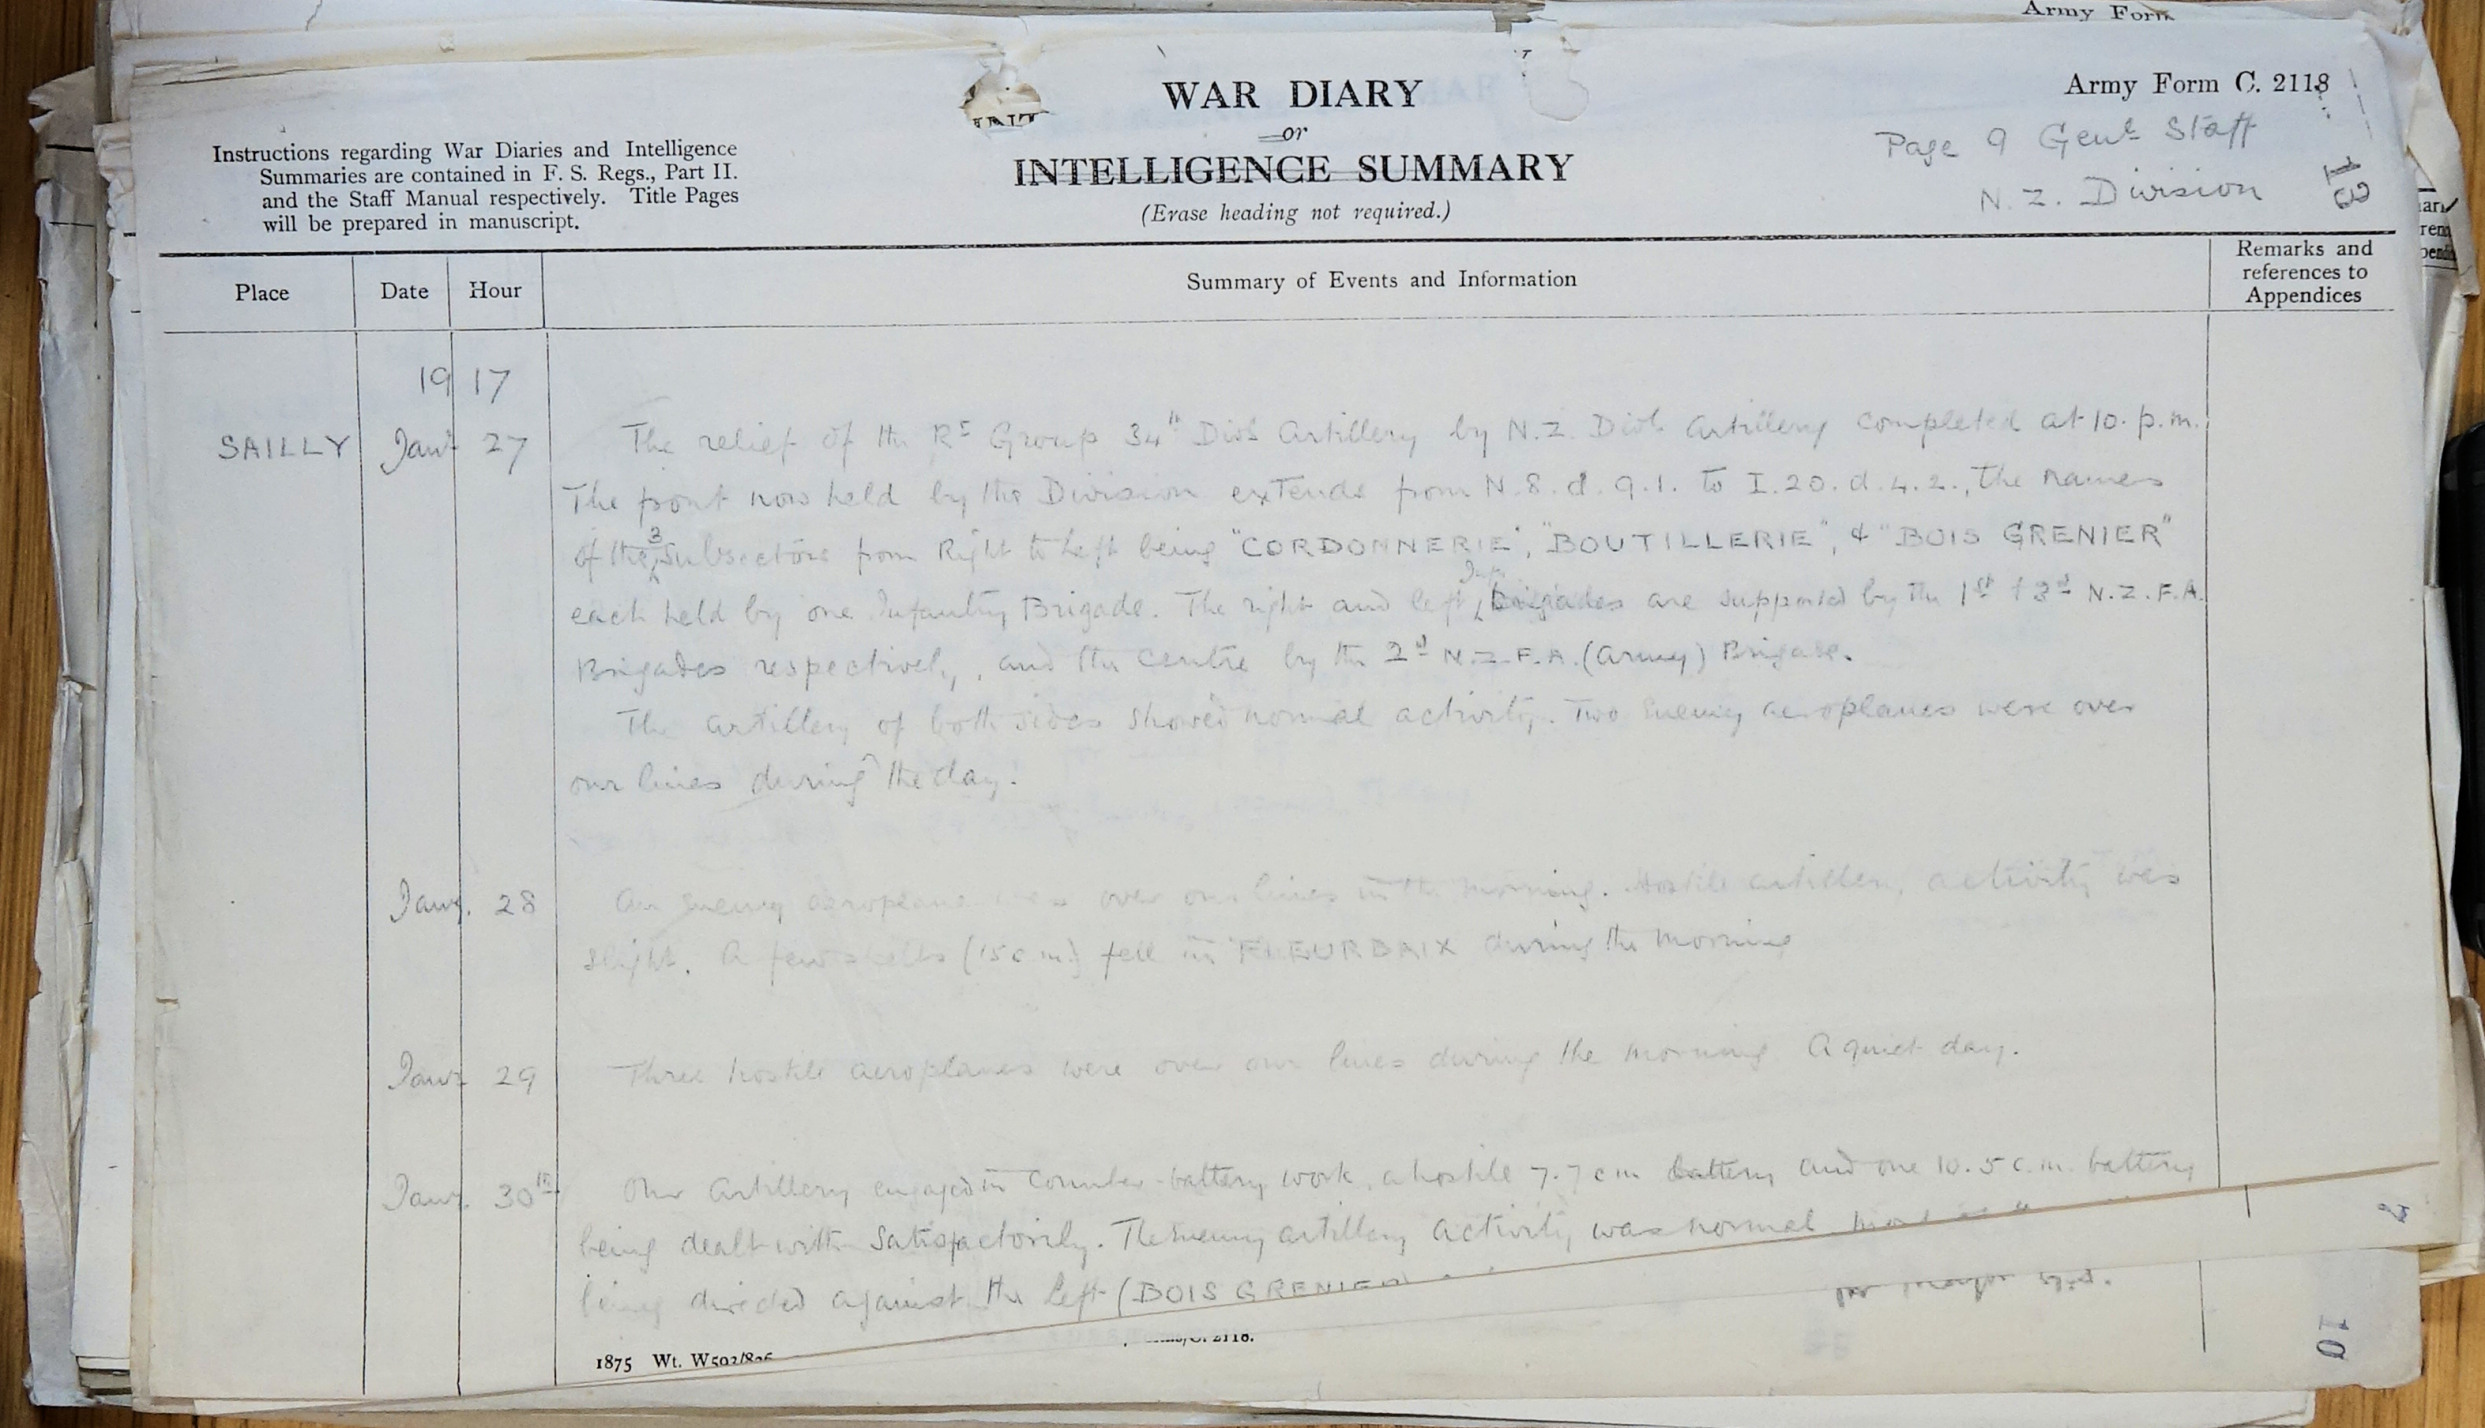 Army Form
WAR DIARY
or
INTELLIGENCE SUMMARY
(Erase heading not required.)
Army Form C. 2118
Page 9 Genl Staff
N. Z. Division
13
Instructions regarding War Diaries and Intelligence
Summaries are contained in F. S. Regs., Part II.
and the Staff Manual respectively. Title Pages
will be prepared in manuscript.
Place Date Hour Summary of Events and Information Remarks and
references to
Appendices
1917
SAILLY Jany 27 The relief of the Rt Group 34th Divl Artillery by N.Z. Divl Artillery completed at 10. p.m.
The front now held by the Division extends from N.8.d.9.1. to I.20.d.4.2., the names
of the 3 subsectors from Right to Left being "CORDONNERIE", "BOUTILLERIE", & "BOIS GRENIER"
each held by one Infantry Brigade. The right and left Inf. Brigades are supported by the 1st & 3rd N.Z.F.A.
Brigades respectively, and the centre by the 2nd N.Z.F.A. (Army) Brigade.
The artillery of both sides showed normal activity. Two enemy aeroplanes were over
our lines during the day.
Jany. 28 An enemy aeroplane was over our lines in the morning. Hostile artillery activity was
slight. A few shells (15 cm) fell in FLEURBAIX during the morning
Jany 29 Three hostile aeroplanes were over our lines during the morning A quiet day.
Jany. 30th Our Artillery engaged in counter-battery work, a hostile 7.7 cm battery and one 10.5 c.m. battery
being dealt with satisfactorily. The enemy artillery activity was normal
being directed against the left (BOIS GRENIER)
1875 Wt. W593/826
C. 2118.
10